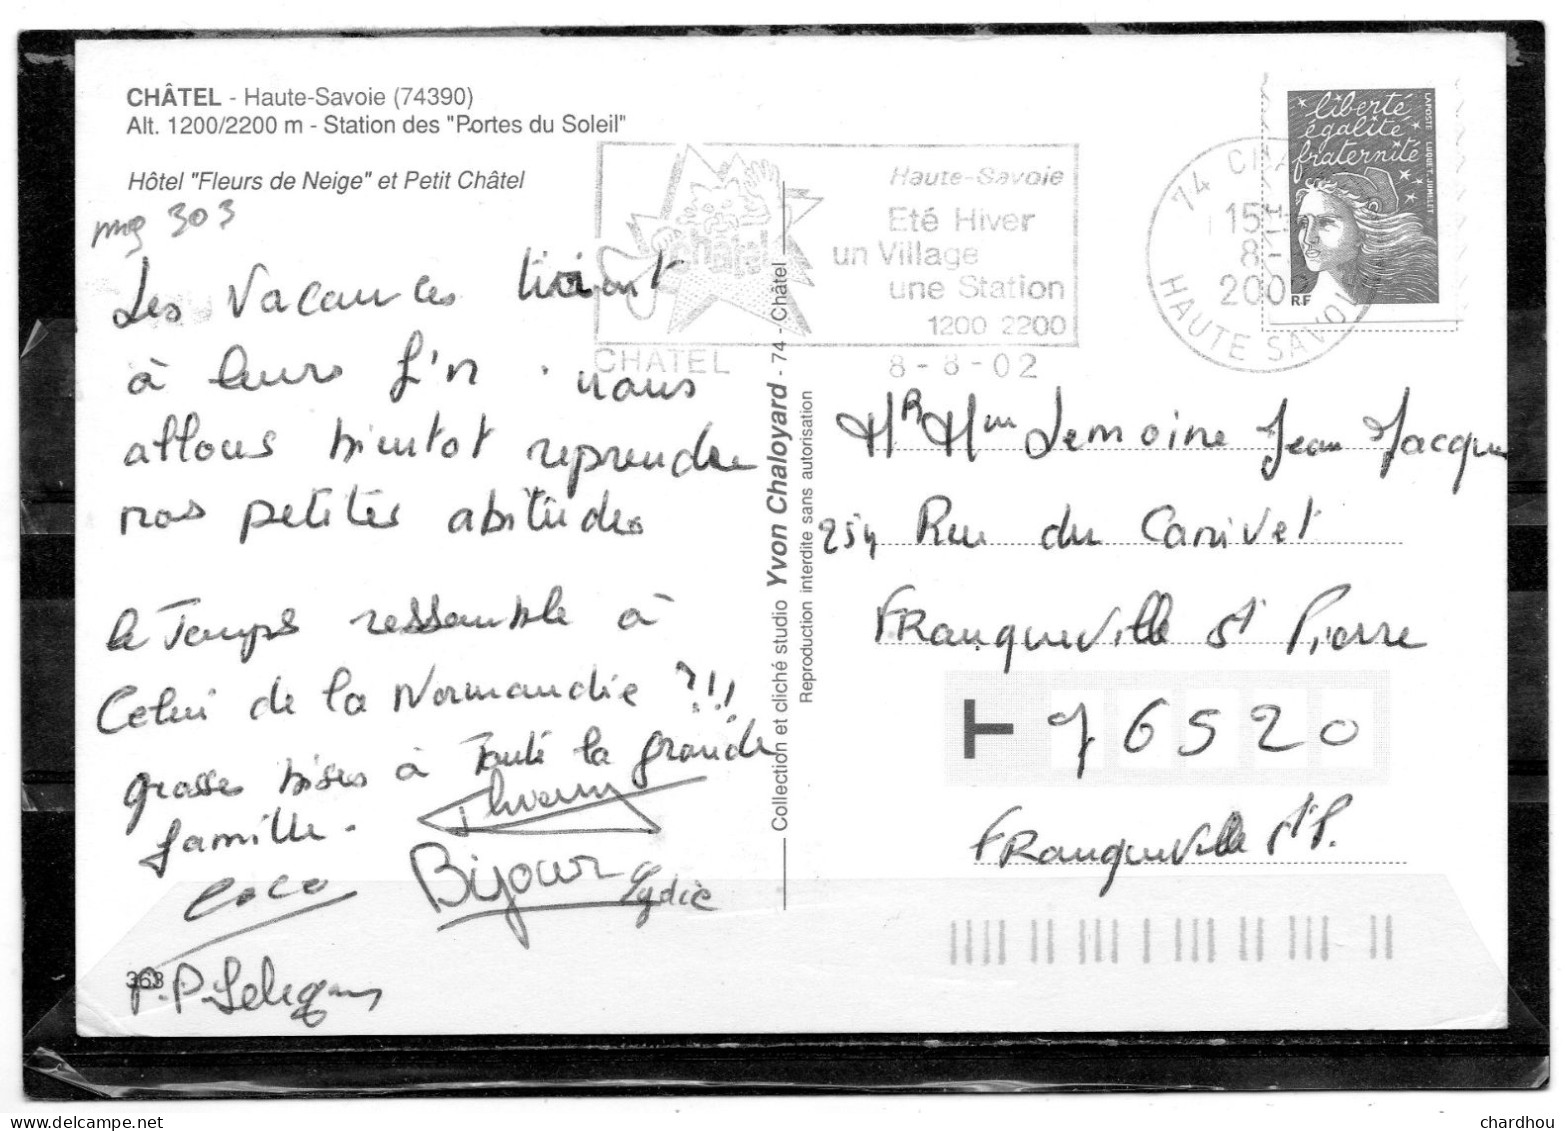 CHÂTEL - Haute-Savoie (74390)
Alt. 1200/2200 m - Station des "Portes du Soleil"
Hôtel "Fleurs de Neige" et Petit Châtel
303
Les vacances tirant
à leurs fin . nous
allons bientot reprendre
nos petites abitudes
le Temps ressemble à
Celui de la Normandie ?!!
grosses bises à toute la grande
famille.
Thierry
coco
Bijour
Lydie
363
P.P.
Collection et cliché studio Yvon Chaloyard - 74 - Châtel
Reproduction interdite sans autorisation
châtel
Haute-Savoie
Eté Hiver
un Village
une Station
1200 2200
CHATEL
8-8-02
74 CHA
15H
8-
2002
HAUTE SAVOI
liberté
égalité
fraternité
RF
LA POSTE LUQUET-JUMELET
Mr Mme Lemoine Jean Jacques
254 Rue du Canivet
FRanqueville St Pierre
76520
FRanqueville St P.
chardhou